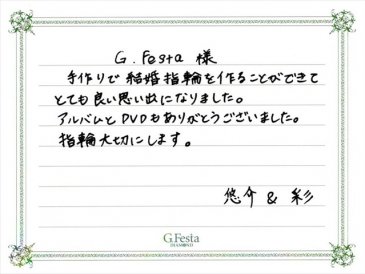 G.Festa 様
手作りで結婚指輪を作ることができて
とても良い思い出になりました。
アルバムとDVDもありがとうございました。
指輪大切にします。
悠介 & 彩
G.Festa
DIAMOND